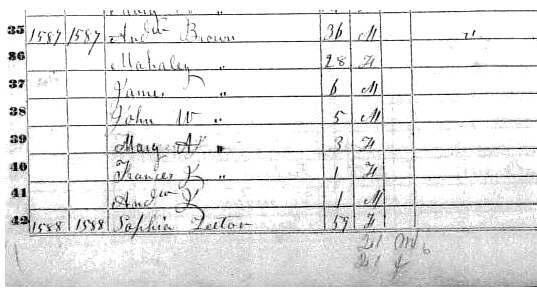 35 1587 1587 Andw Brown 36 M "
36 Mahaley " 28 F
37 James " 6 M
38 John W " 5 M
39 Mary A " 3 F
40 Frances 1 F
41 Andw 1 M
42 1588 1588 Sophia Teetor 59 F
M